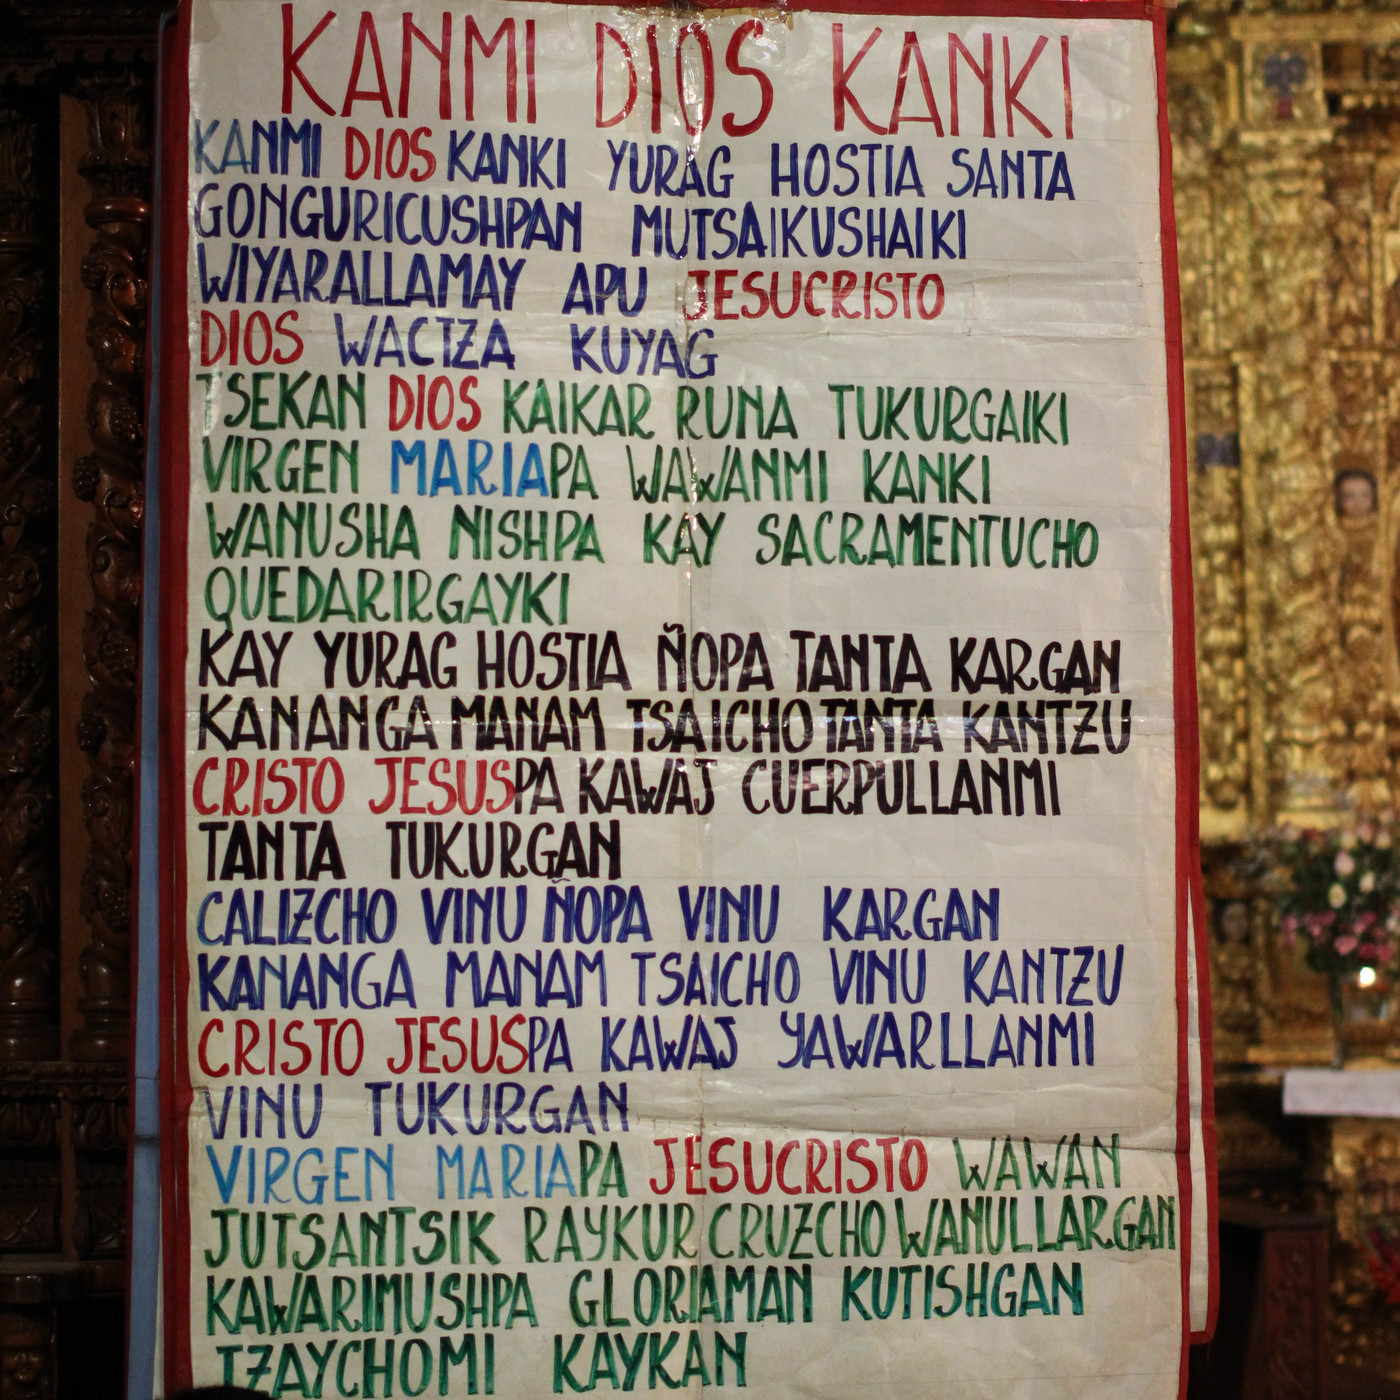 KANMI DIOS KANKI
KANMI DIOS KANKI YURAG HOSTIA SANTA
GONGURICUSHPAN MUTSAIKUSHAIKI
WIYARALLAMAY APU JESUCRISTO
DIOS WACTZA KUYAG
TSEKAN DIOS KAIKAR RUNA TUKURGAIKI
VIRGEN MARIAPA WAWANMI KANKI
WANUSHA NISHPA KAY SACRAMENTUCHO
QUEDARIRGAYKI
KAY YURAG HOSTIA ÑOPA TANTA KARGAN
KANANGA MANAM TSAICHO TANTA KANTZU
CRISTO JESUSPA KAWAJ CUERPULLANMI
TANTA TUKURGAN
CALIZCHO VINU ÑOPA VINU KARGAN
KANANGA MANAM TSAICHO VINU KANTZU
CRISTO JESUSPA KAWAJ YAWARLLANMI
VINU TUKURGAN
VIRGEN MARIAPA JESUCRISTO WAWAN
JUTSANTSIK RAYKUR CRUZCHO WANULLARGAN
KAWARIMUSHPA GLORIAMAN KUTISHGAN
TZAYCHOMI KAYKAN